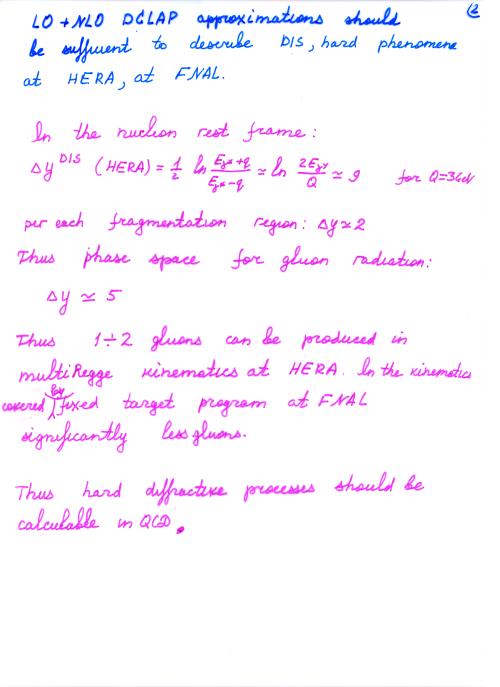 (2
LO + NLO DGLAP approximations should
be suffiuent to describe DIS, hard phenomena
at HERA, at FNAL.
In the nucleon rest frame:
Δy^DIS (HERA) = 1/2 ln (E_γ* + q)/(E_γ* − q) ≃ ln 2E_γ*/Q ≃ 9 for Q=3GeV
per each fragmentation region: Δy≃2
Thus phase space for gluon radiation:
Δy ≃ 5
Thus 1÷2 gluons can be produced in
multiRegge kinematics at HERA. In the kinematics
covered by fixed target program at FNAL
significantly less gluons.
Thus hard diffractive processes should be
calculable in QCD.